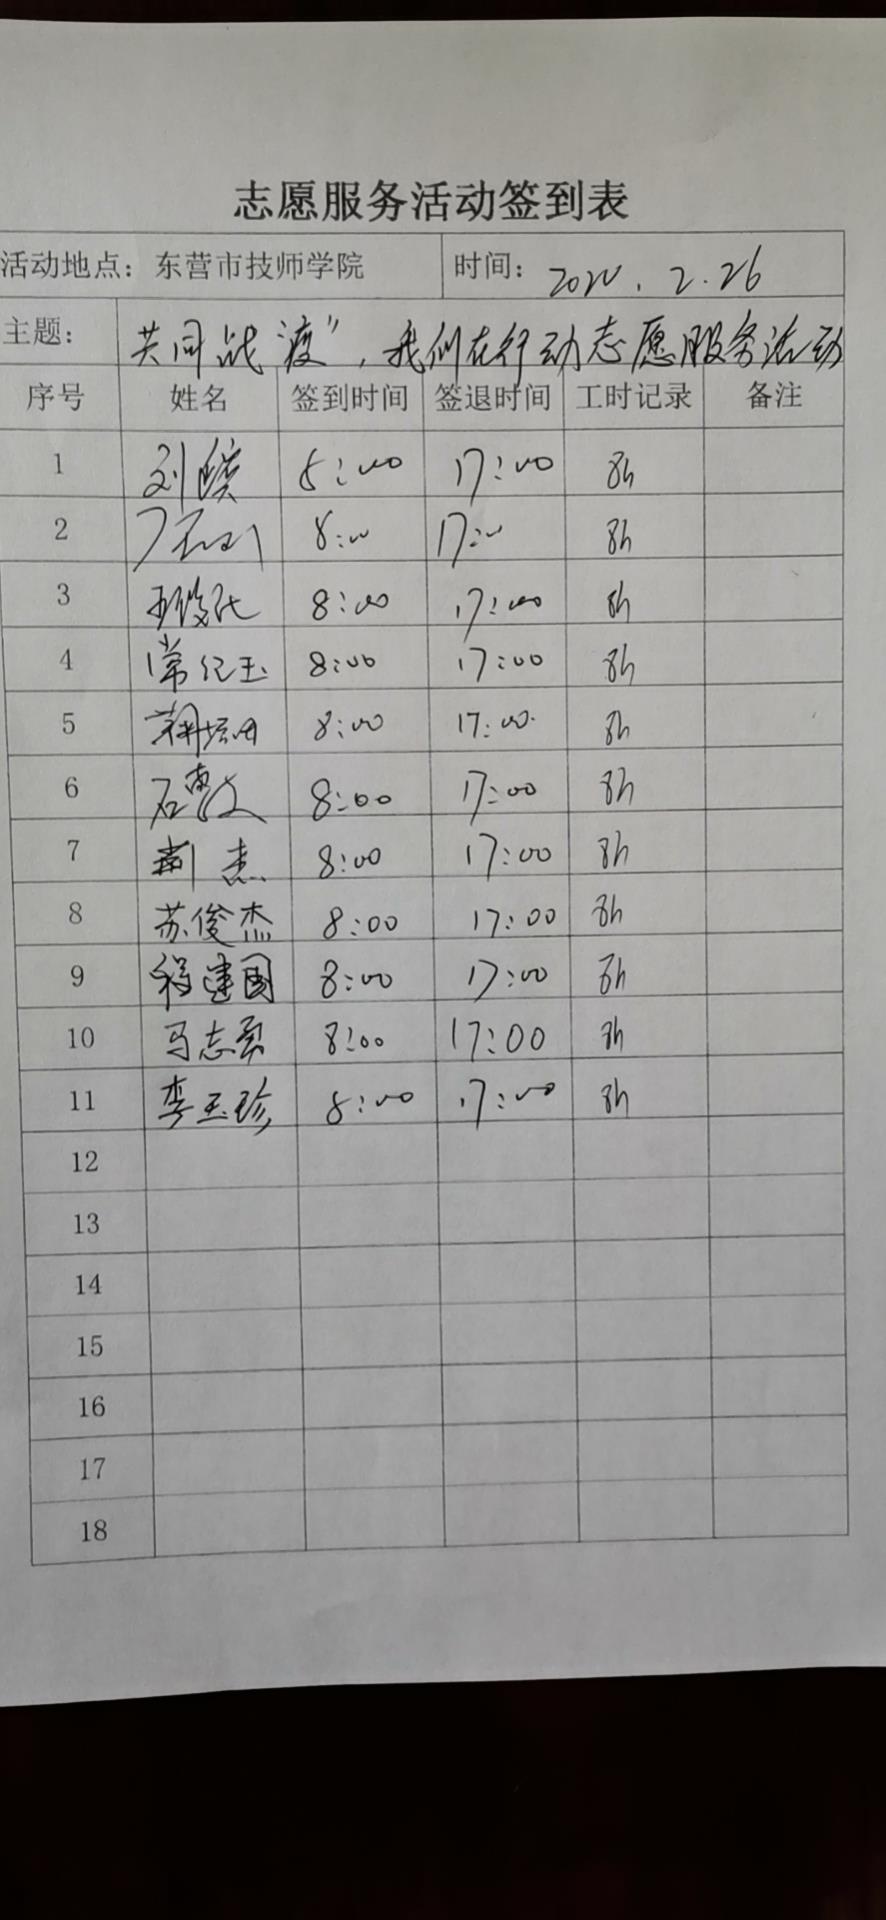 志愿服务活动签到表
活动地点：东营市技师学院 时间：2020.2.26
主题：共同战"疫"，我们在行动志愿服务活动
序号 姓名 签到时间 签退时间 工时记录 备注
1 刘 8:00 17:00 8h
2 8:00 17:00 8h
3 8:00 17:00 8h
4 常纪玉 8:00 17:00 8h
5 8:00 17:00 8h
6 石 8:00 17:00 8h
7 杰 8:00 17:00 8h
8 苏俊杰 8:00 17:00 8h
9 程建国 8:00 17:00 8h
10 马志勇 8:00 17:00 8h
11 李玉珍 8:00 17:00 8h
12
13
14
15
16
17
18